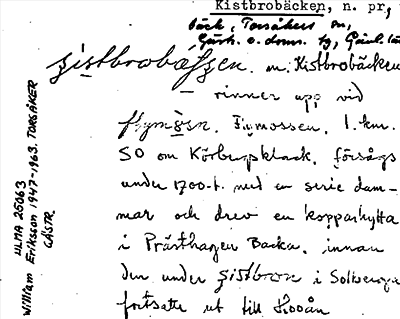 Kistbrobäcken, n. pr,
bäck, Torsåkers sn,
Gästr. ö. doms. tg, Gävl. lä
m. Kistbrobäcken
rinner upp vid
Flymossen, 1 km.
SO om Körbergsklack, försågs
under 1700-t. med en serie dam-
mar och drev en kopparhytta
i Prästhagen Backa, innan
den under i Solberga
fortsatte ut till Hoån
ULMA 25063
William Eriksson 1947-1963. TORSÅKER
GÄSTR.